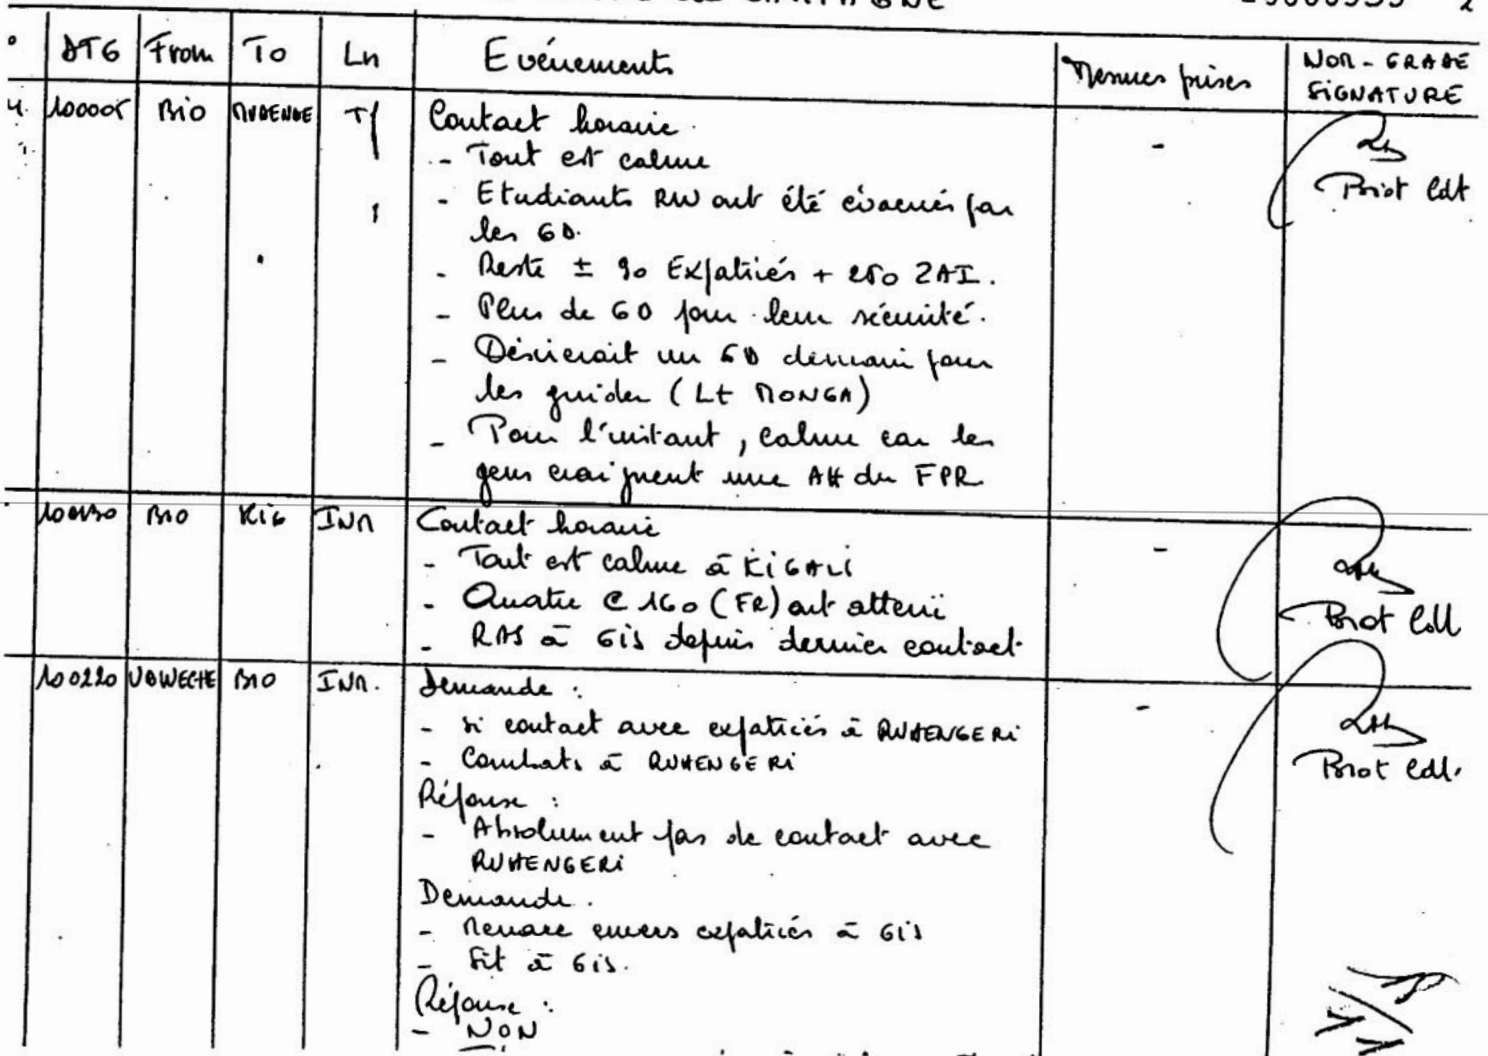 DTG From To Ln Evénements Mesures prises NOM - GRADE
SIGNATURE
4. 100005 BIO MUDENDE Tf Contact horaire. -
- Tout est calme
- Etudiants RW ont été évacués par
les GD.
- Reste ± 90 Expatriés + 250 ZAI.
- Plus de GD pour leur sécurité.
- Désirerait un GD demain pour
les guider (Lt MONGA)
- Pour l'instant, calme car les
gens craignent une AH du FPR
100130 BIO KIG INM Contact horaire -
- Tout est calme à KIGALI
- Quatre C 160 (FR) ont atterri
- RAS à GIS depuis dernier contact
100220 BIO INM. Demande : -
- si contact avec expatriés à RUHENGERI
- Combats à RUHENGERI
Réponse :
- Absolument pas de contact avec
RUHENGERI
Demande.
- Menace envers expatriés à GIS
- Sit à GIS.
Réponse :
- NON